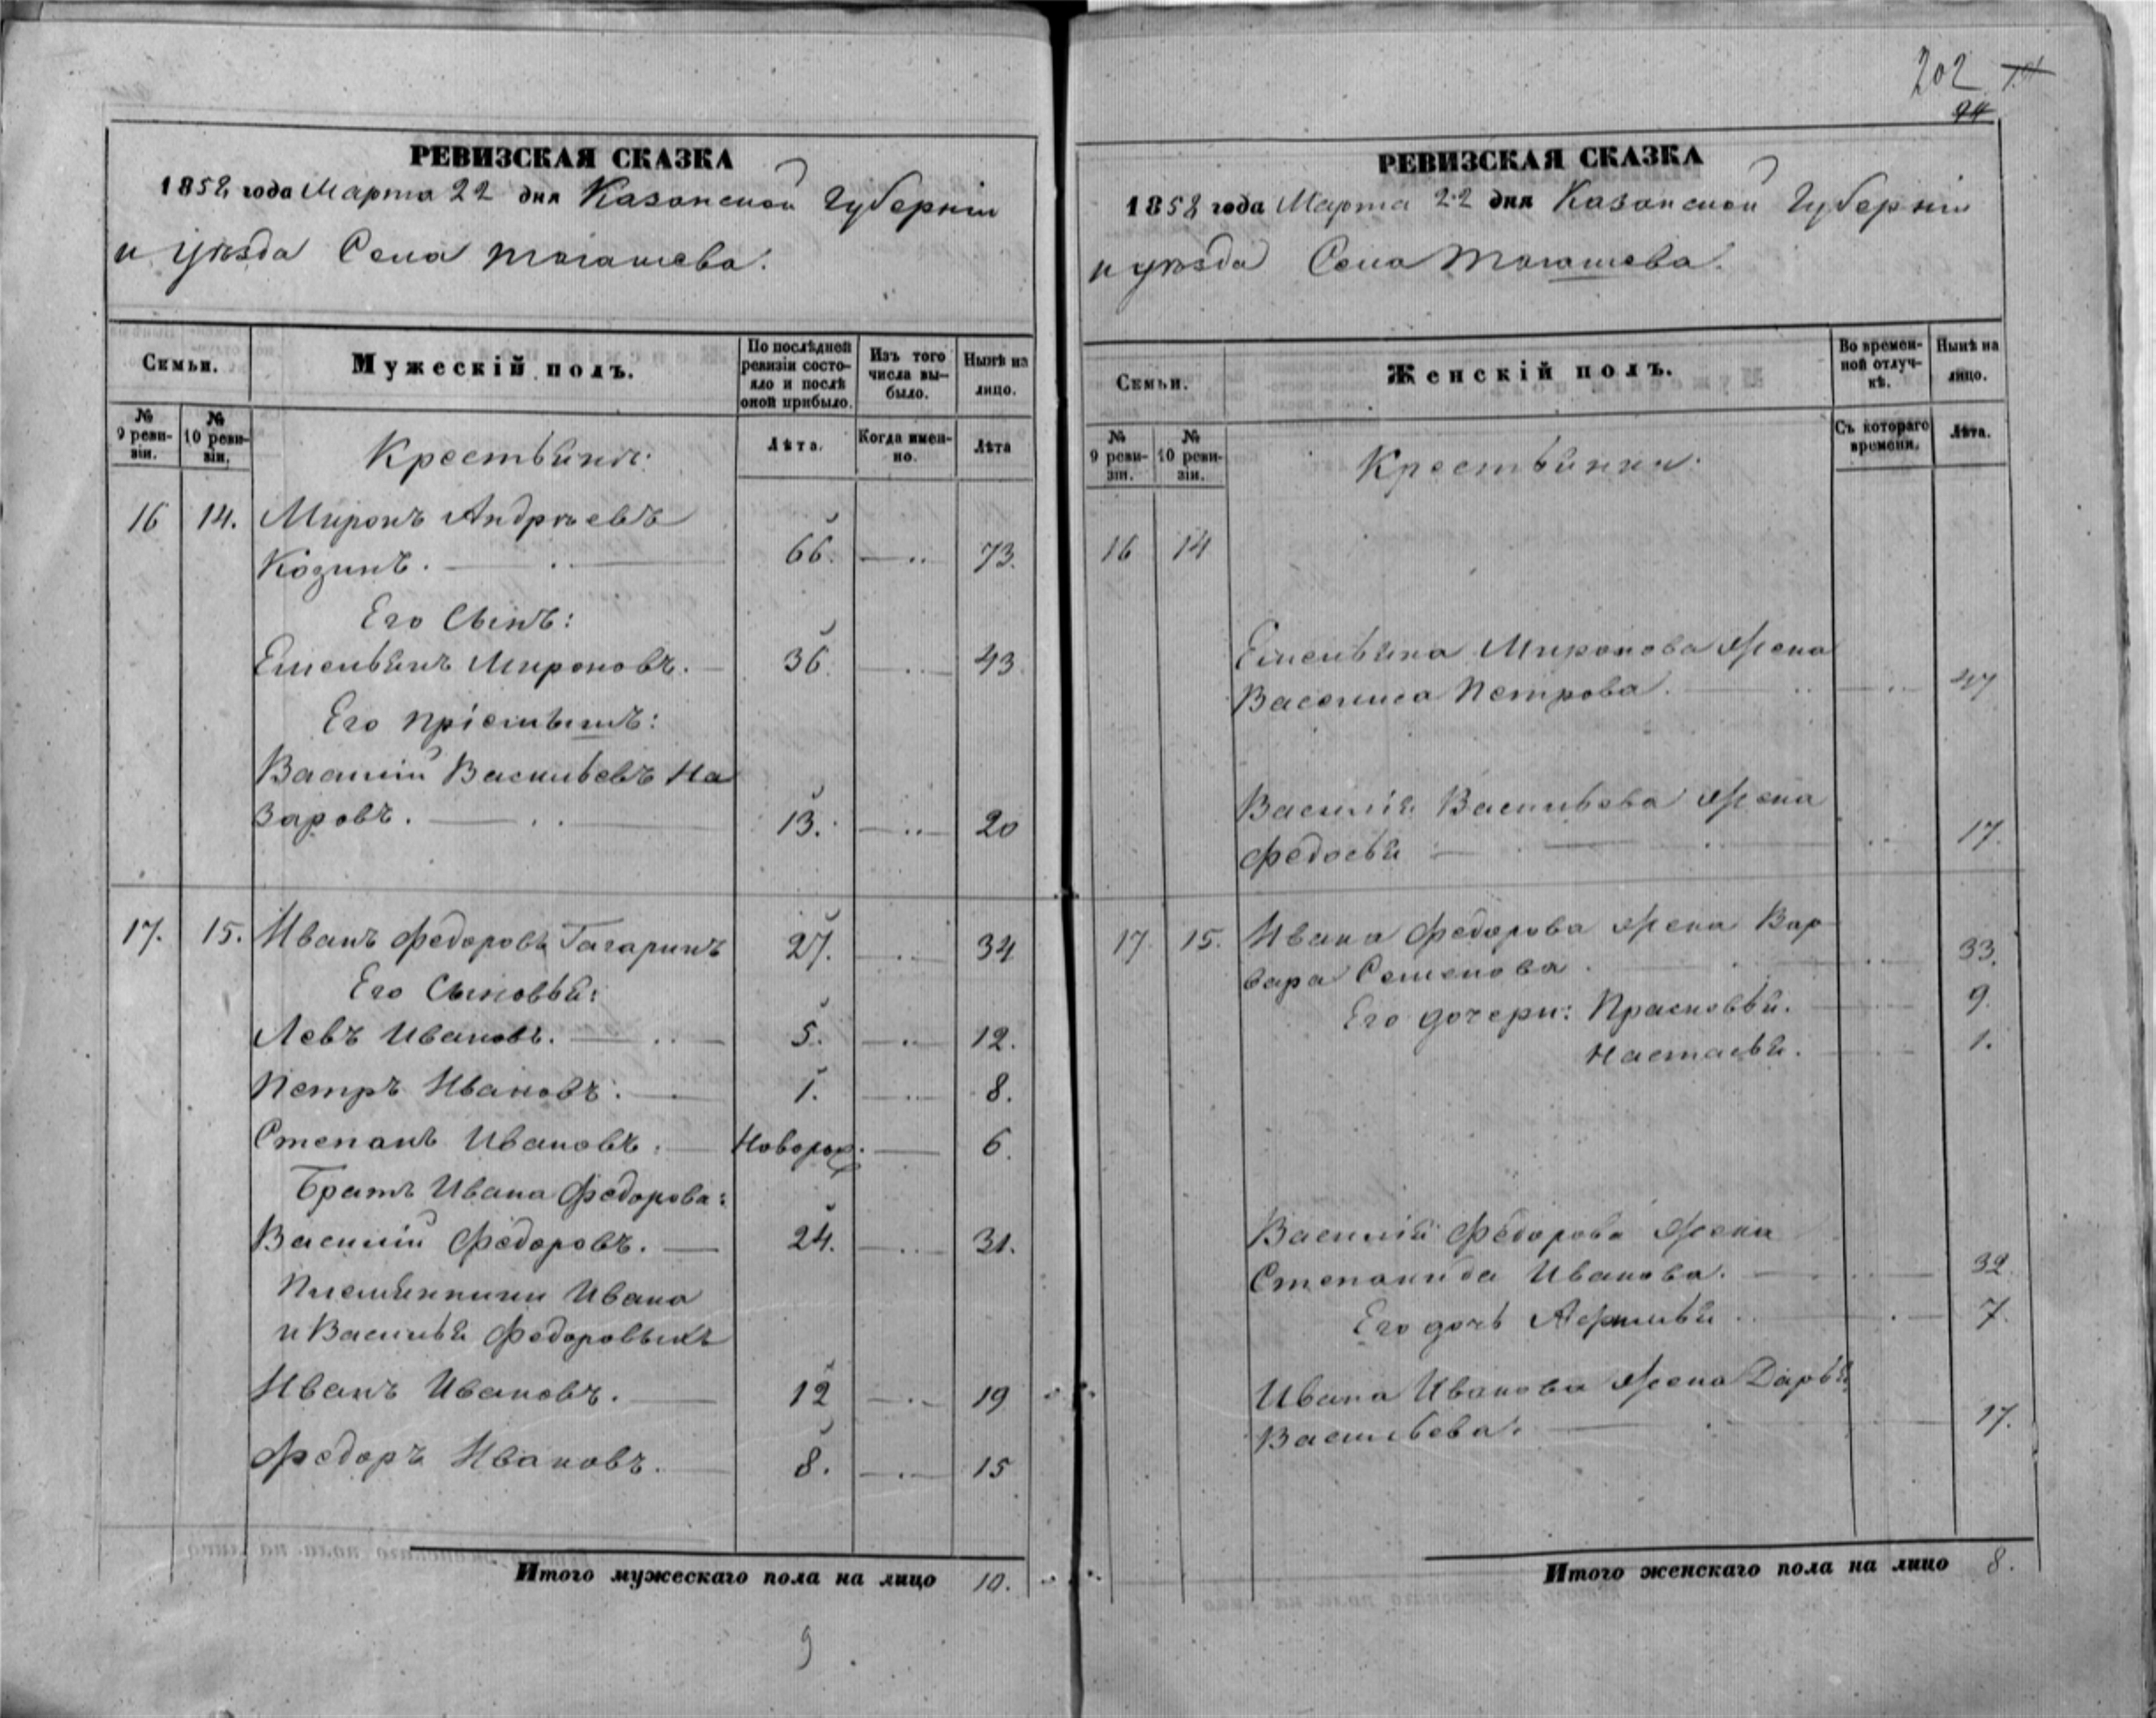 РЕВИЗСКАЯ СКАЗКА
1858 года Марта 22 дня Казанской Губерніи
и уѣзда Села Тогашева.
Семьи.
Мужескій полъ.
По послѣдней ревизіи состояло и послѣ оной прибыло.
Изъ того числа выбыло.
Нынѣ на лицо.
№ 9 ревизіи.
№ 10 ревизіи.
Лѣта.
Когда именно.
Лѣта
Крестьяне:
16 14. Миронъ Андреевъ
Козинъ. 66. 73.
Его Сынъ:
Емельянъ Мироновъ. 36. 43.
Его пріемышъ:
Василій Васильевъ На
заровъ. 13. 20
17. 15. Иванъ Федоровъ Гагаринъ 27. 34
Его Сыновья:
Левъ Ивановъ. 5. 12.
Петръ Ивановъ. 1. 8.
Степанъ Ивановъ. Новорож. 6.
Братъ Ивана Федорова:
Василій Федоровъ. 24. 31.
Племянники Ивана
и Василья Федоровыхъ
Иванъ Ивановъ. 12 19
Федоръ Ивановъ. 8. 15
Итого мужескаго пола на лицо 10.
9
202
94
РЕВИЗСКАЯ СКАЗКА
1858 года Марта 22 дня Казанской Губерніи
и уѣзда Села Тогашева.
Семьи.
Женскій полъ.
Во временной отлучкѣ.
Нынѣ на лицо.
№ 9 ревизіи.
№ 10 ревизіи.
Съ котораго времени.
Лѣта.
Крестьянки.
16 14
Емельяна Миронова жена
Василиса Петрова. 47
Василія Васильева жена
Федосья 17.
17. 15. Ивана Федорова жена Вар
вара Семенова. 33.
Его дочери: Прасковья. 9.
Настасья. 1.
Василія Федорова жена
Степанида Иванова. 32.
Его дочь 7.
Ивана Иванова жена Дарья
Васильева. 17.
Итого женскаго пола на лицо 8.